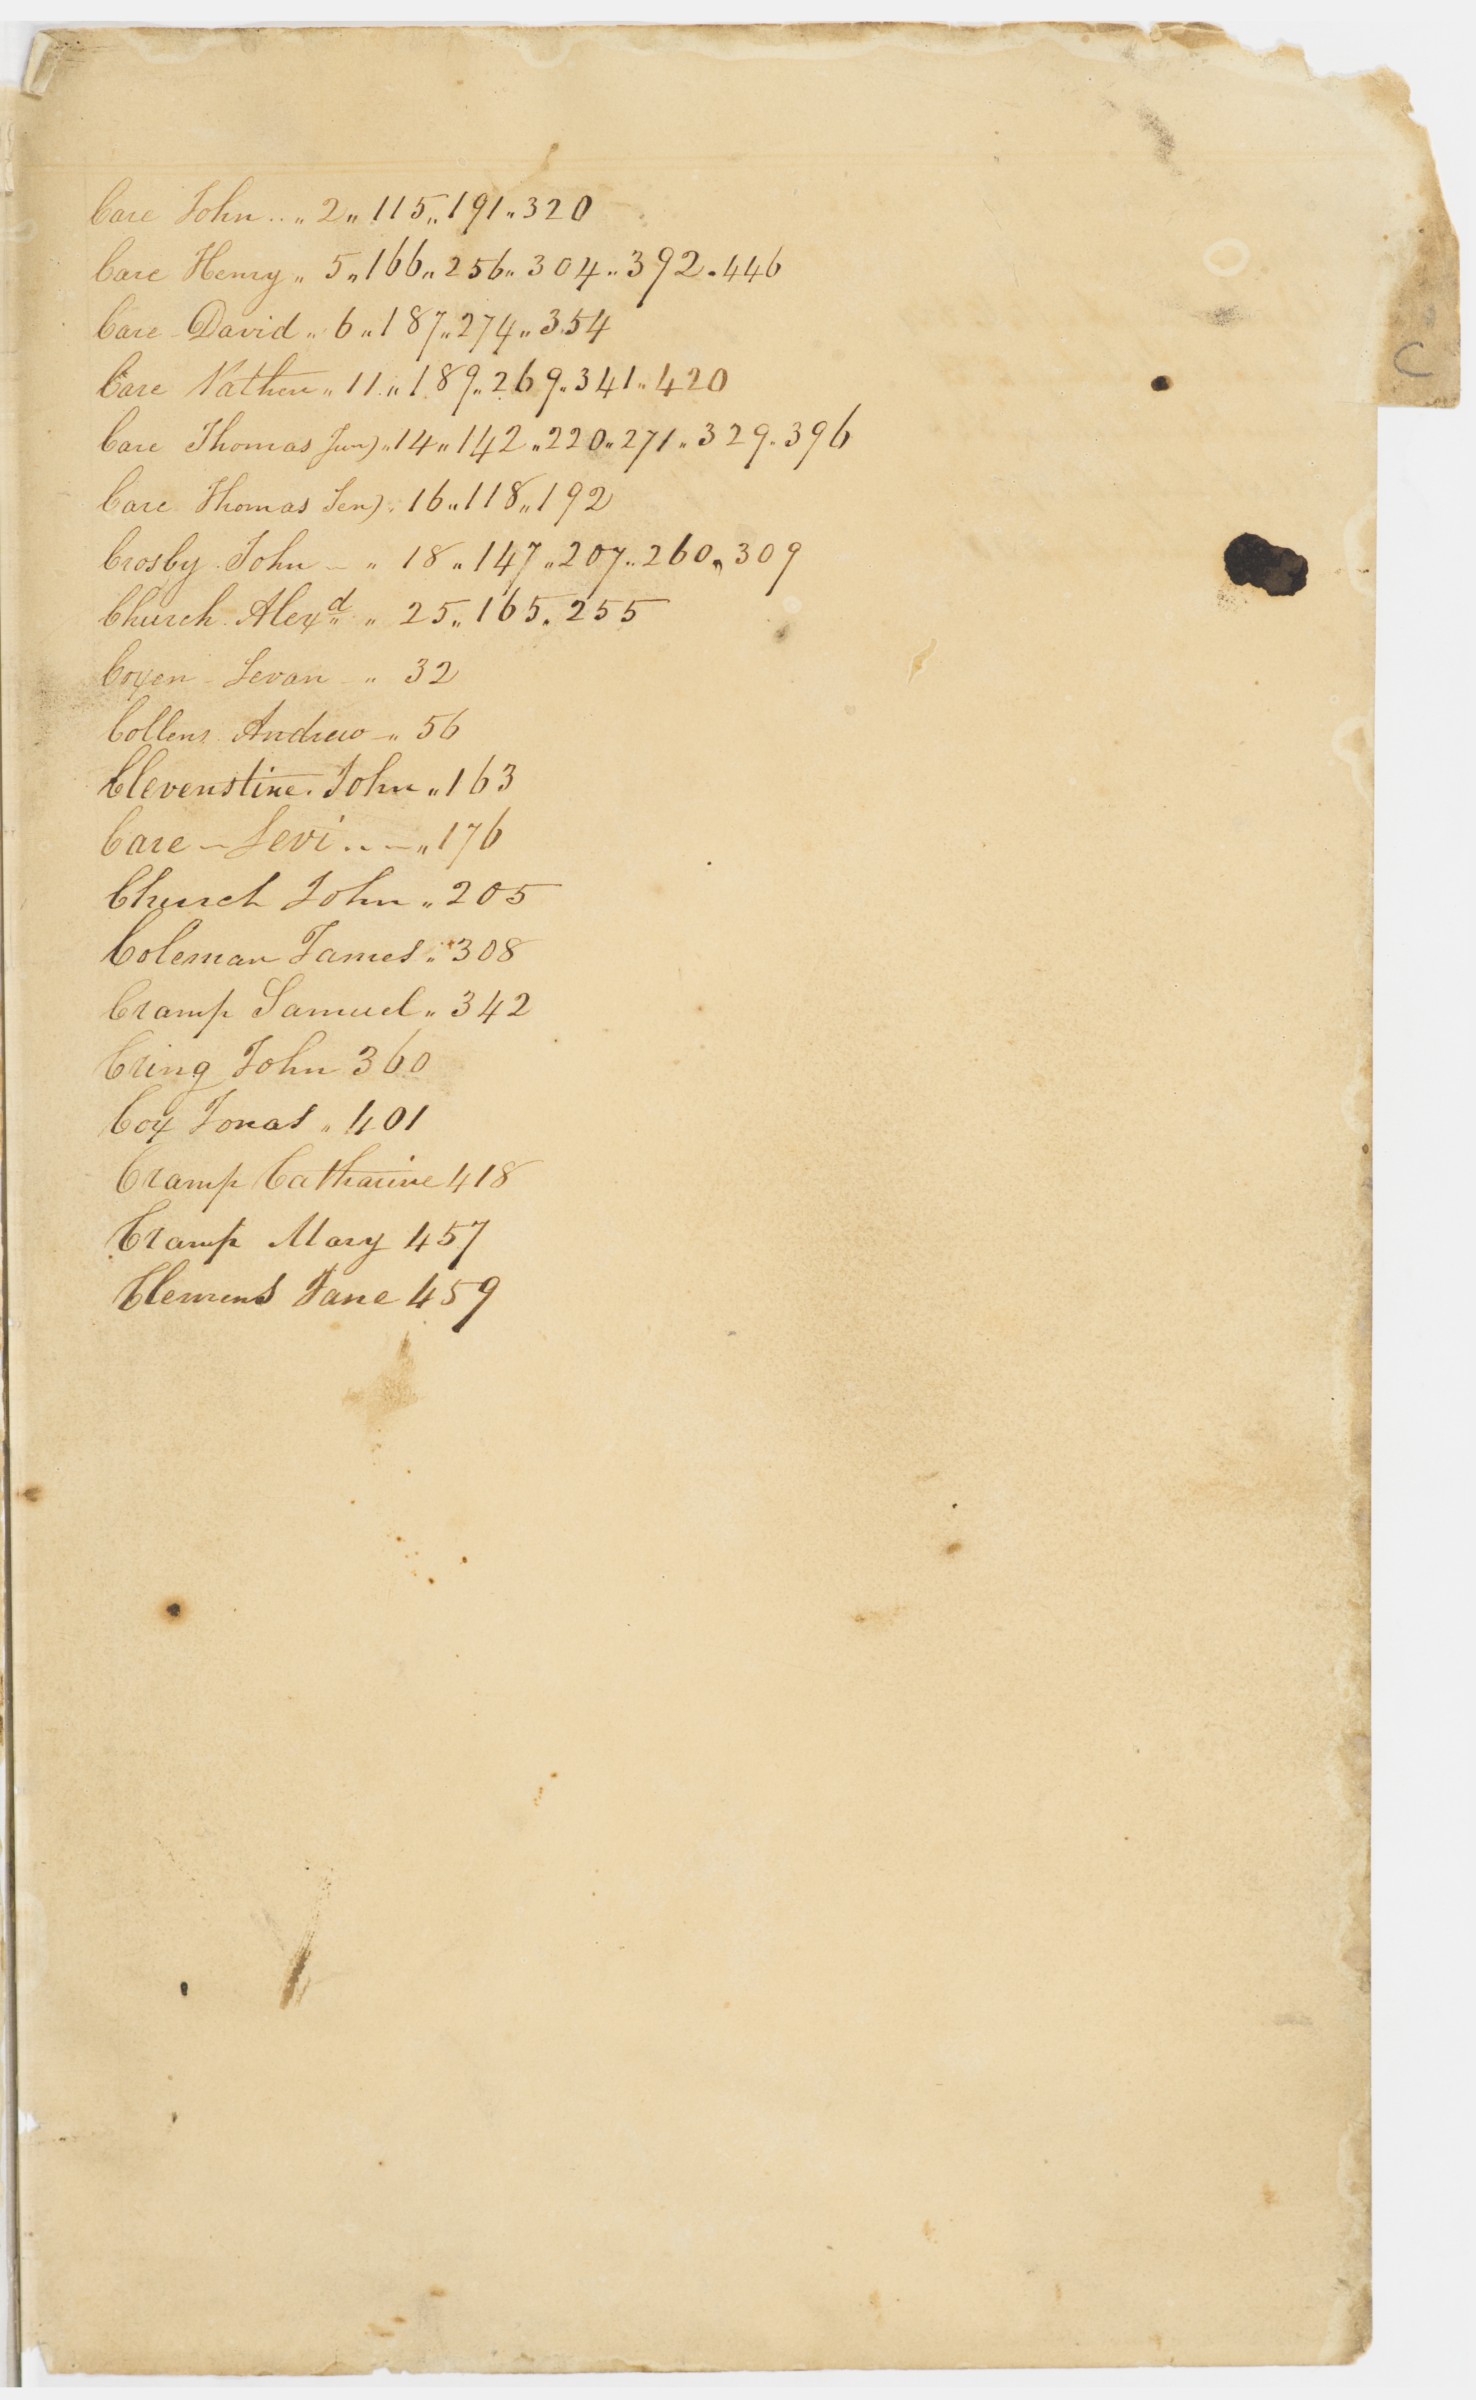 Care John .. „ 2 „ 115 „ 191 „ 320
Care Henry „ 5 „ 166 „ 256 „ 304 „ 392 „ 446
C
Care David „ 6 „ 187 „ 274 „ 354
Care Nathen „ 11 „ 189 „ 269 „ 341 „ 420
Care Thomas Jun) „ 14 „ 142 „ 220 „ 271 „ 329 „ 396
Care Thomas Sen) „ 16 „ 118 „ 192
Crosby John – „ 18 „ 147 „ 207 „ 260 „ 309
Church Alexd „ 25 „ 165 „ 255
Coxen Levan – „ 32
Collens Andrew – „ 56
Clevenstine John „ 163
Care – Levi .. – „ 176
Church John „ 205
Coleman James „ 308
Cramp Samuel „ 342
Cring John 360
Cox Jonas „ 401
Cramp Catharine 418
Cramp Mary 457
Clemens Jane 459